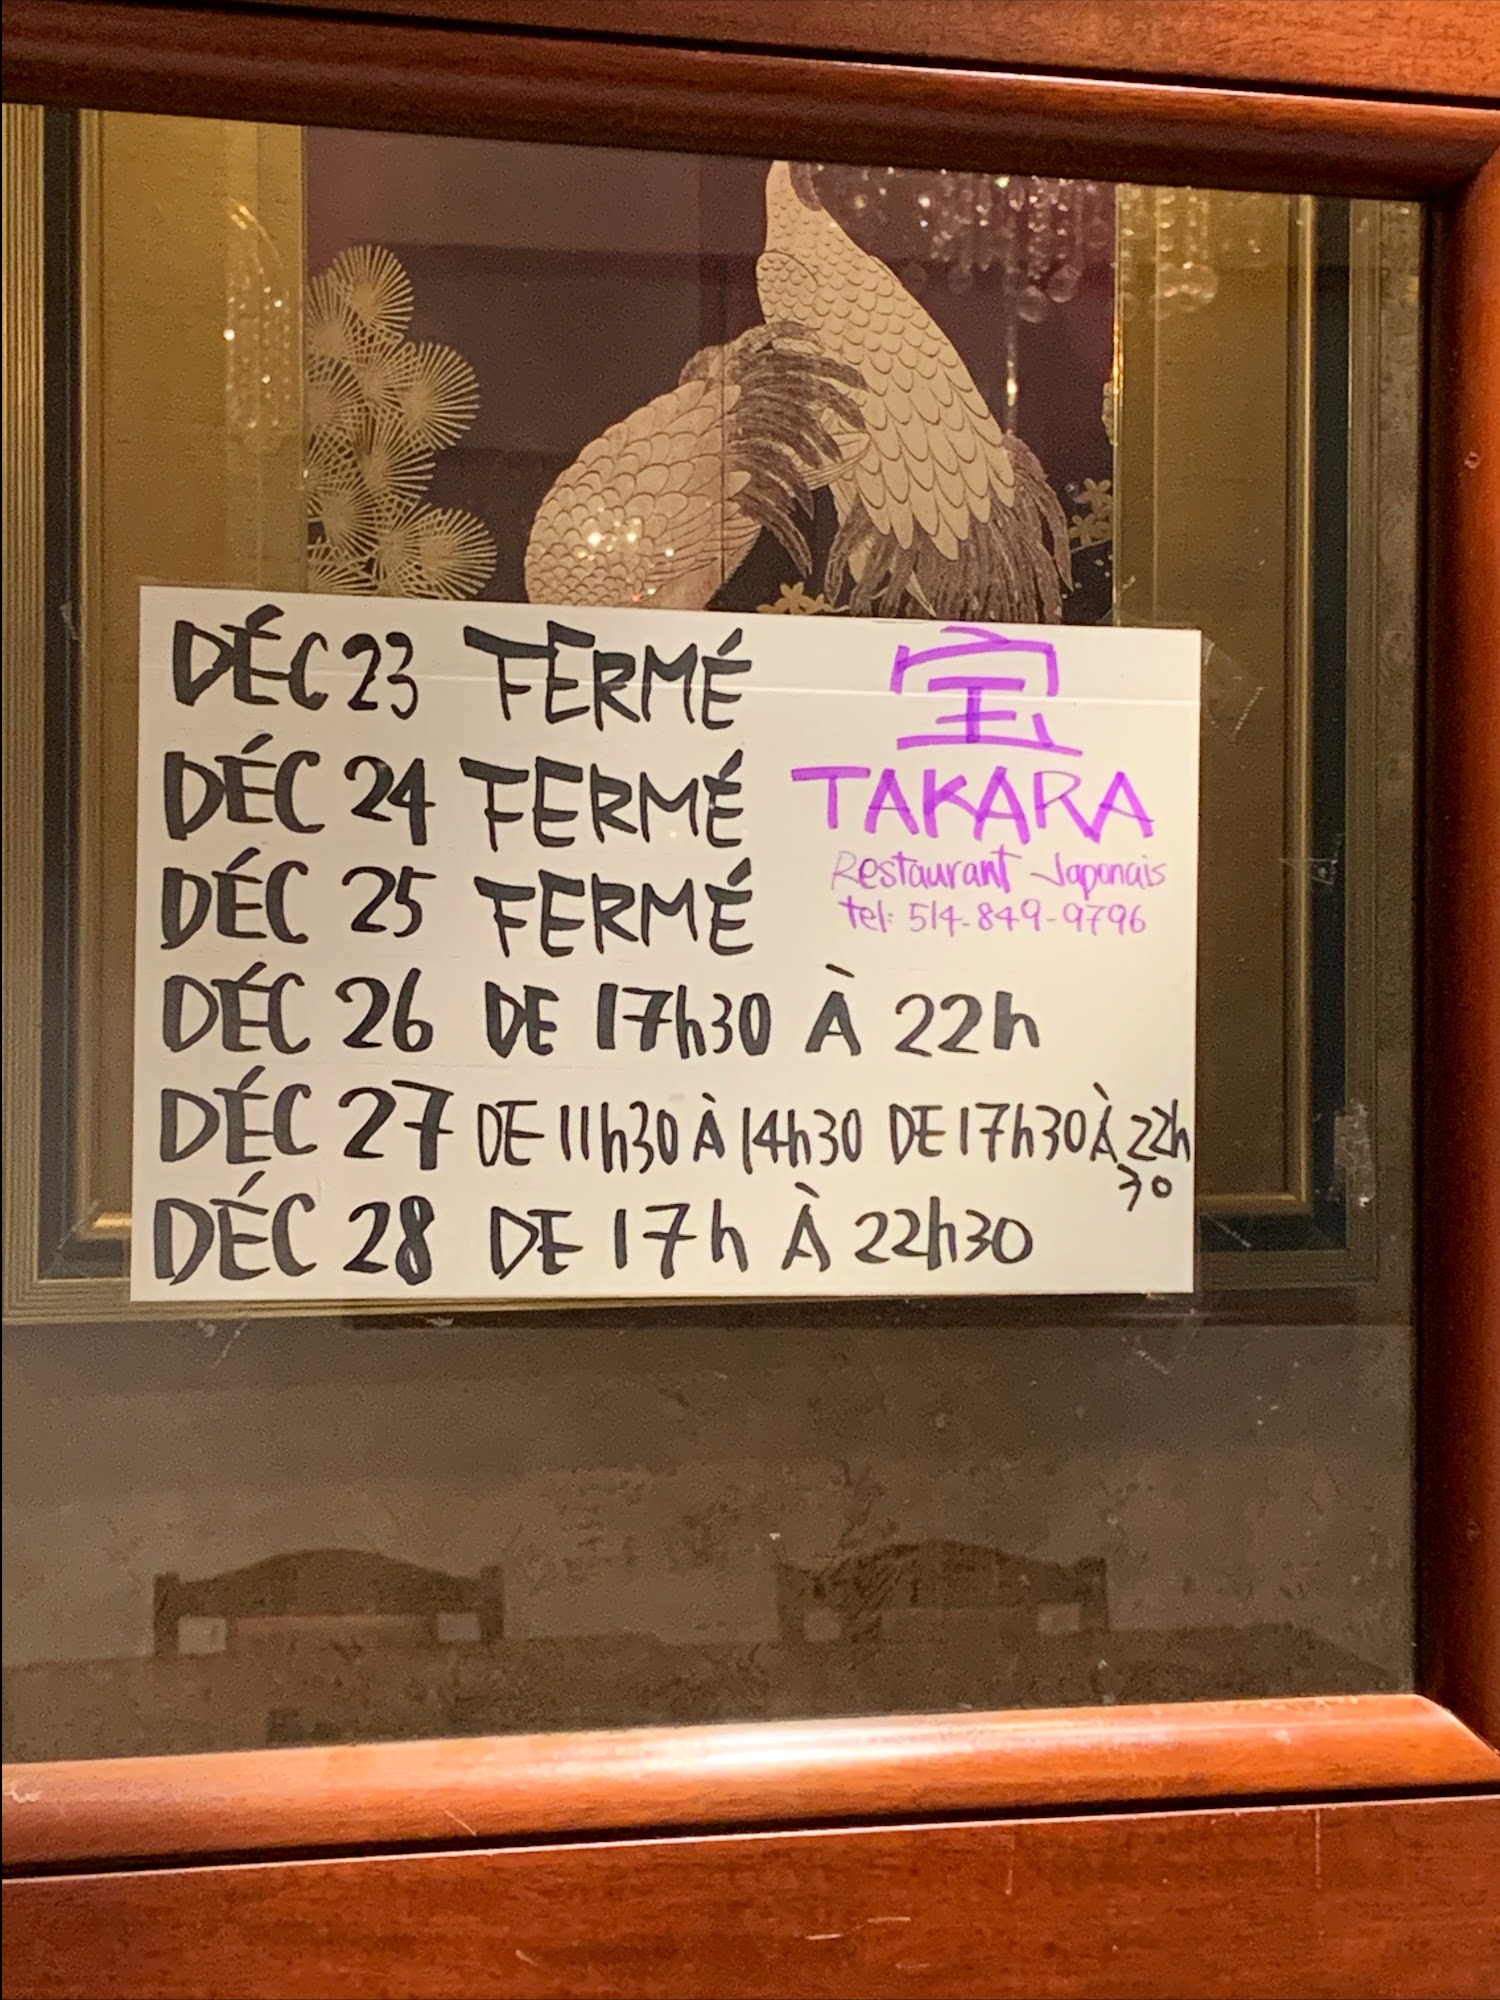 DÉC 23 FERMÉ
DÉC 24 FERMÉ
DÉC 25 FERMÉ
DÉC 26 DE 17h30 À 22h
DÉC 27 DE 11h30 À 14h30 DE 17h30 À 22h
30
DÉC 28 DE 17h À 22h30
宝
TAKARA
Restaurant Japonais
tel: 514-849-9796